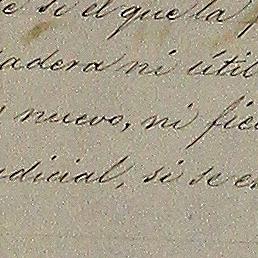 e si el que la
adera ni útil
nuevo, ni fic
udicial, si se e